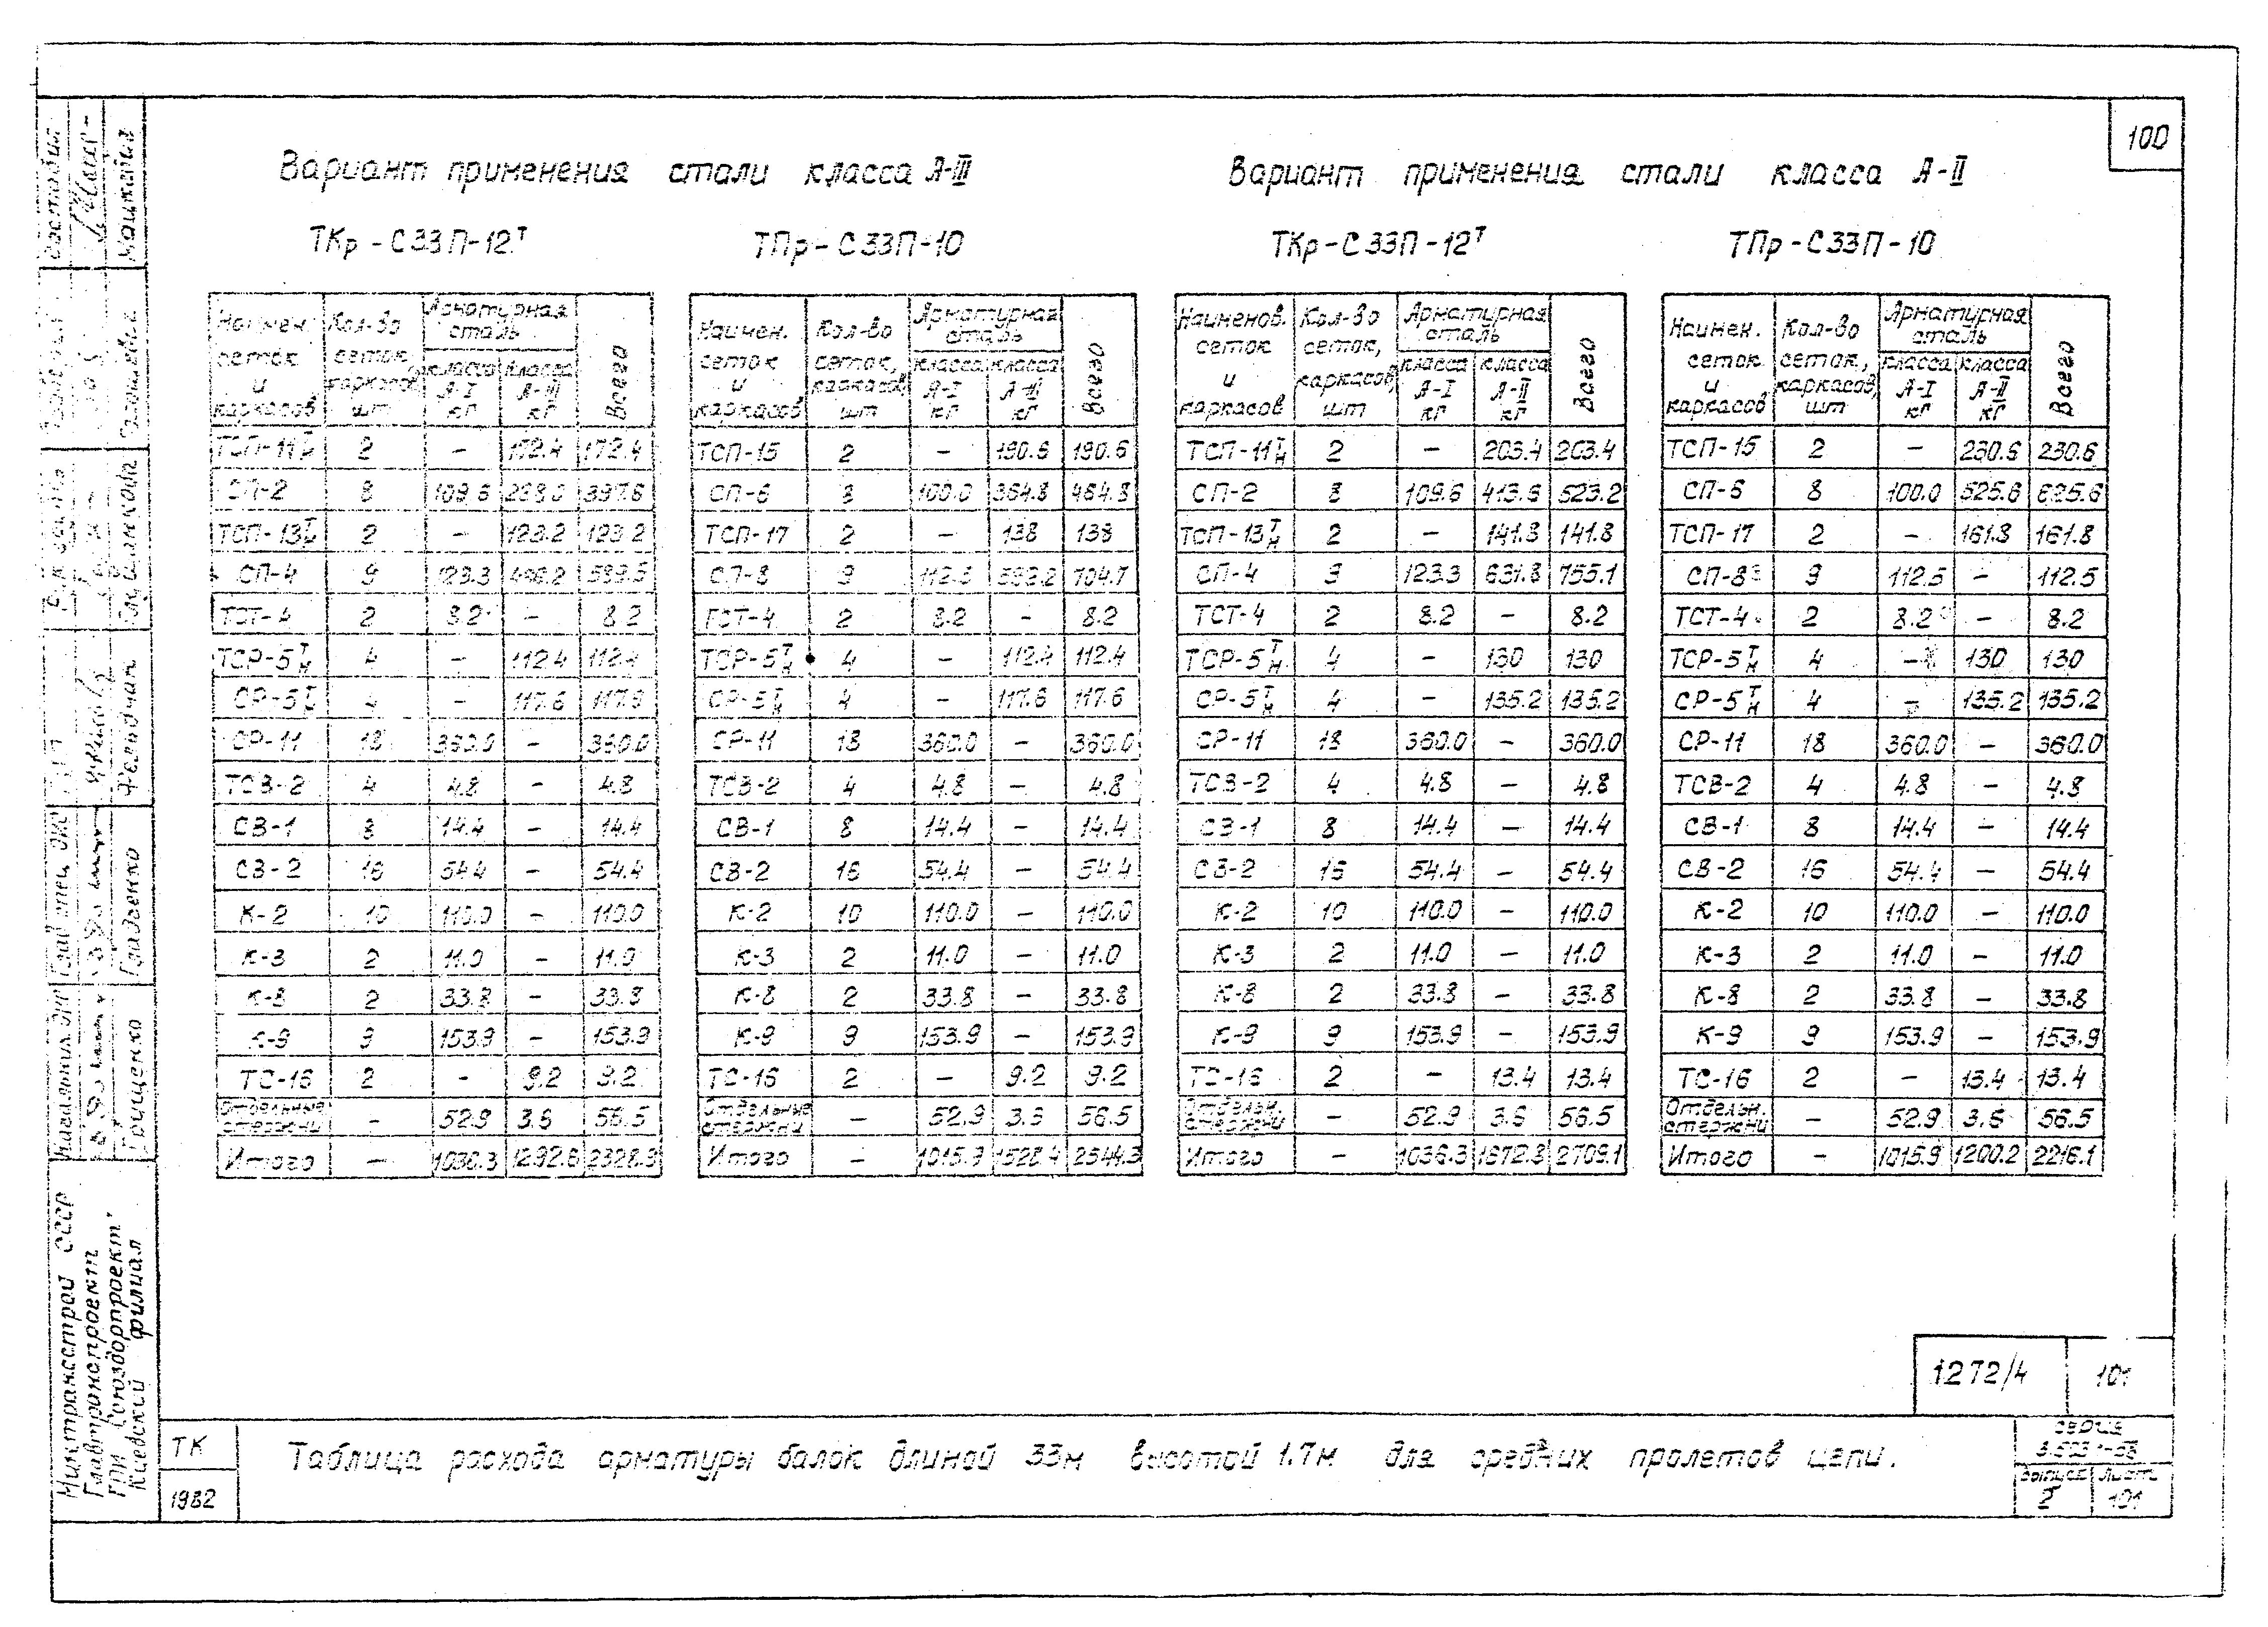 100
Вариант применения стали класса А-III
Вариант применения стали класса А-II
ТКр-С33П-12Т
ТПр-С33П-10
ТКр-С33П-12Т
ТПр-С33П-10
Наимен. сеток и каркасов | Кол-во сеток, каркасов, шт | Арматурная сталь | класса А-I кг | класса А-III кг | Всего
ТСП-11Тн 2 – 172.4 172.4
СП-2 8 109.6 288.0 397.6
ТСП-13Тн 2 – 123.2 123.2
СП-4 9 123.3 466.2 589.5
ТСТ-4 2 8.2 – 8.2
ТСР-5Тн 4 – 112.4 112.4
СР-5Тн 4 – 117.6 117.6
СР-11 18 360.0 – 360.0
ТСВ-2 4 4.8 – 4.8
СВ-1 8 14.4 – 14.4
СВ-2 16 54.4 – 54.4
К-2 10 110.0 – 110.0
К-3 2 11.0 – 11.0
К-8 2 33.8 – 33.8
К-9 9 153.9 – 153.9
ТС-16 2 – 9.2 9.2
Отдельные стержни – 52.9 3.6 56.5
Итого – 1036.3 1292.6 2328.9
Наимен. сеток и каркасов | Кол-во сеток, каркасов, шт | Арматурная сталь | класса А-I кг | класса А-III кг | Всего
ТСП-15 2 – 190.6 190.6
СП-6 8 100.0 364.8 464.8
ТСП-17 2 – 138 138
СП-8 9 112.5 592.2 704.7
ТСТ-4 2 8.2 – 8.2
ТСР-5Тн 4 – 112.4 112.4
СР-5Тн 4 – 117.6 117.6
СР-11 18 360.0 – 360.0
ТСВ-2 4 4.8 – 4.8
СВ-1 8 14.4 – 14.4
СВ-2 16 54.4 – 54.4
К-2 10 110.0 – 110.0
К-3 2 11.0 – 11.0
К-8 2 33.8 – 33.8
К-9 9 153.9 – 153.9
ТС-16 2 – 9.2 9.2
Отдельные стержни – 52.9 3.6 56.5
Итого – 1015.9 1528.4 2544.3
Наименов. сеток и каркасов | Кол-во сеток, каркасов, шт | Арматурная сталь | класса А-I кг | класса А-II кг | Всего
ТСП-11Тн 2 – 203.4 203.4
СП-2 8 109.6 413.6 523.2
ТСП-13Тн 2 – 141.8 141.8
СП-4 9 123.3 631.8 755.1
ТСТ-4 2 8.2 – 8.2
ТСР-5Тн 4 – 130 130
СР-5Тн 4 – 135.2 135.2
СР-11 18 360.0 – 360.0
ТСВ-2 4 4.8 – 4.8
СВ-1 8 14.4 – 14.4
СВ-2 16 54.4 – 54.4
К-2 10 110.0 – 110.0
К-3 2 11.0 – 11.0
К-8 2 33.8 – 33.8
К-9 9 153.9 – 153.9
ТС-16 2 – 13.4 13.4
Отдельн. стержни – 52.9 3.6 56.5
Итого – 1036.3 1672.8 2709.1
Наимен. сеток и каркасов | Кол-во сеток, каркасов, шт | Арматурная сталь | класса А-I кг | класса А-II кг | Всего
ТСП-15 2 – 230.6 230.6
СП-6 8 100.0 525.6 625.6
ТСП-17 2 – 161.8 161.8
СП-8 9 112.5 – 112.5
ТСТ-4 2 8.2 – 8.2
ТСР-5Тн 4 – 130 130
СР-5Тн 4 – 135.2 135.2
СР-11 18 360.0 – 360.0
ТСВ-2 4 4.8 – 4.8
СВ-1 8 14.4 – 14.4
СВ-2 16 54.4 – 54.4
К-2 10 110.0 – 110.0
К-3 2 11.0 – 11.0
К-8 2 33.8 – 33.8
К-9 9 153.9 – 153.9
ТС-16 2 – 13.4 13.4
Отдельн. стержни – 52.9 3.6 56.5
Итого – 1015.9 1200.2 2216.1
1272/4 101
ТК
1982
Таблица расхода арматуры балок длиной 33м высотой 1.7м для средних пролетов цепи.
серия
выпуск 2
лист 101
Минтрансстрой СССР
Главтранспроект
ГПИ "Союздорпроект"
Киевский филиал
Грищенко
Гладченко